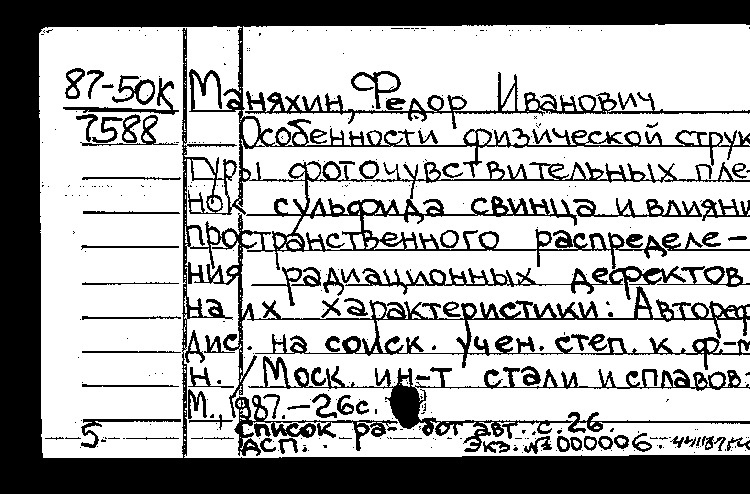 87-50К Маняхин, Федор Иванович
7588 Особенности физической струк
туры фоточувствительных пле-
нок сульфида свинца и влияни
пространственного распределе-
ния радиационных дефектов
на их характеристики: Автореф
дис. на соиск. учен. степ. к.ф.-м
н. / Моск. ин-т стали и сплавов:
М., 1987.-26с.
Список ра- бот авт. с.26.
5 ДСП. Экз. №000006.